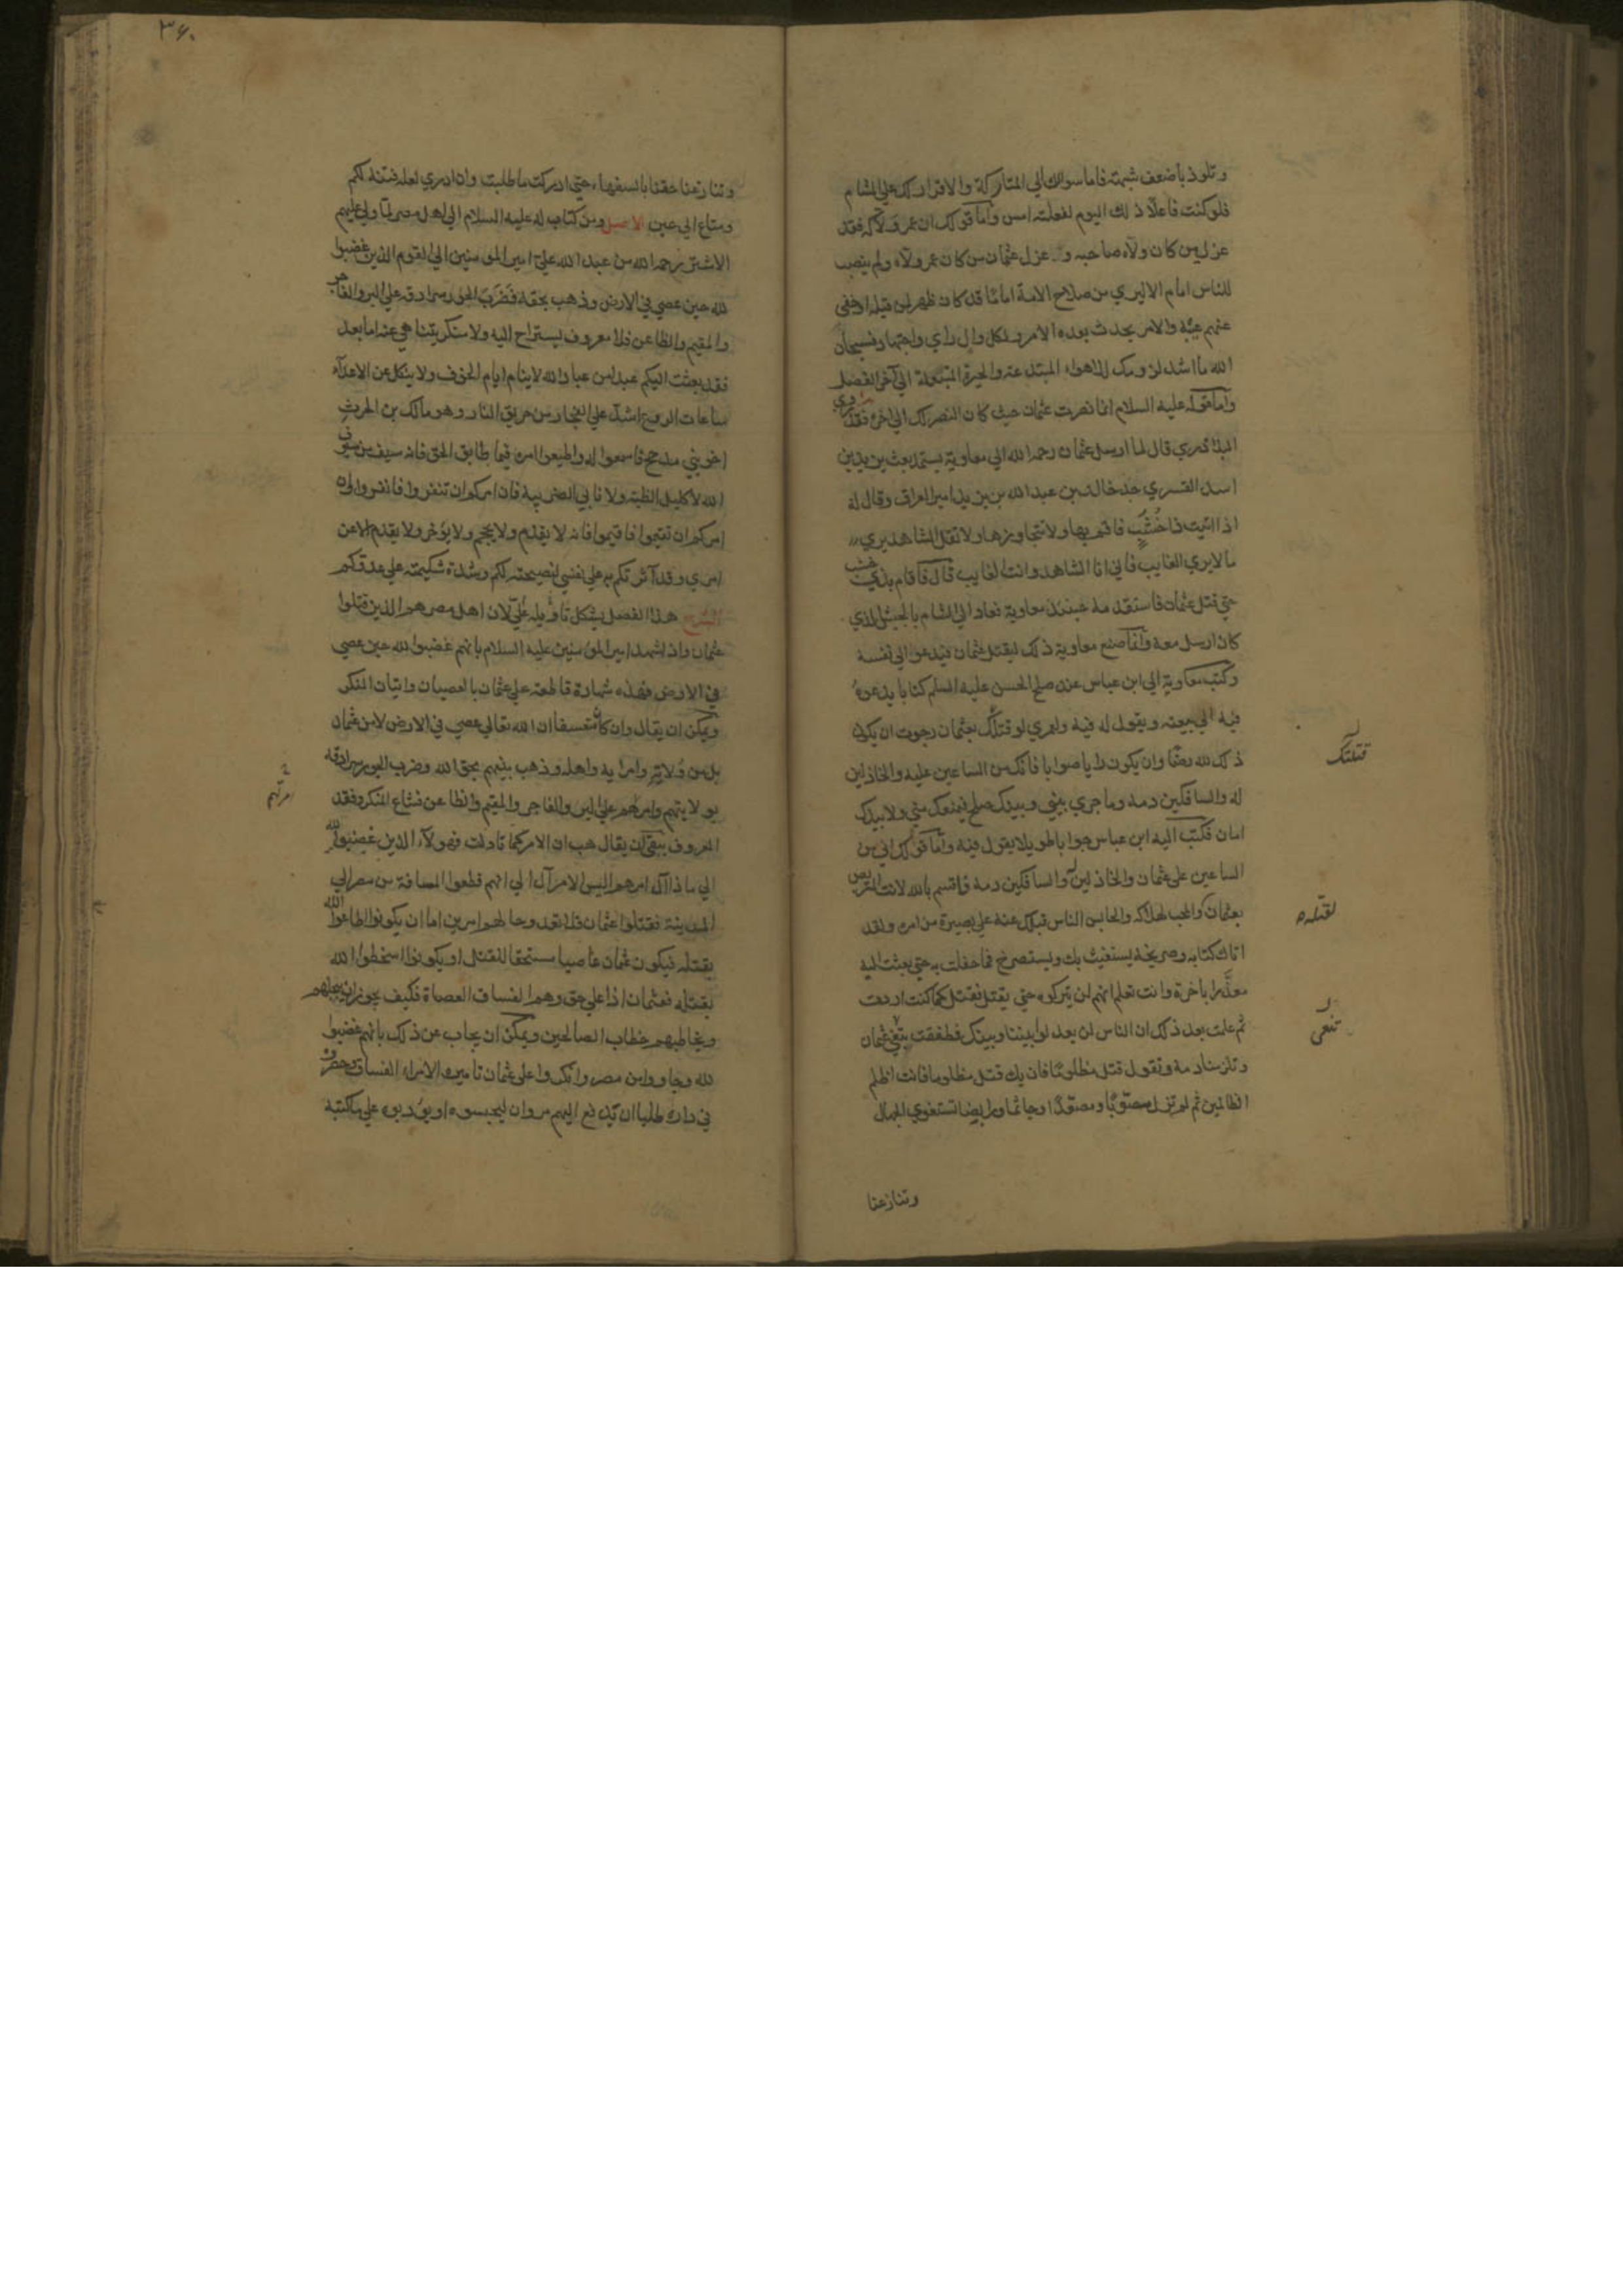 وتلوذ باضعف شبهته فاما سوالك الي المتاركة والاقرار لك علي الشام
فلو كنت فاعلا ذلك اليوم لفعلته امس واما قولك ان عمر ولاكه فقد
عزل من كان ولاه صاحبه و عزل عثمان من كان عمر ولاه ولم ينصب
للناس امام الا ليري من صلاح الامة اماما قد كان ظهر لمن قبله او خفي
عنهم عيبه والامر يحدث بعده الامر ولكل وال راي واجتهاد فسبحان
الله ما اشد لزومك للاهواء المبتدعة والحيرة المتبعة الي آخر الفصل
واما قوله عليه السلام انما نصرت عثمان حيث كان النصر لك الي اخره فقد روي
البلاذري قال لما ارسل عثمان رحمه الله الي معاوية يستمده بعث يزيد بن
اسد القسري جد خالد بن عبد الله بن يزيد امير العراق وقال له
اذا اتيت ذا خشب فاقم بها ولا تتجاوزها ولا تقل الشاهد يري
ما لا يري الغايب فاني انا الشاهد وانت الغايب قال فاقام بذي خشب
حتي قتل عثمان فاستقدمه حينئذ معاوية فعاد الي الشام بالجيش الذي
كان ارسل معه وانما صنع معاوية ذلك ليقتل عثمان فيدعو الي نفسه
وكتب معاوية الي ابن عباس عند صلح الحسن عليه السلم كتابا يدعوه
فيه الي بيعته ويقول له فيه ولعمري لو قتلك بعثمان رجوت ان يكون
ذلك لله رضا وان يكون رايا صوابا فانك من الساعين عليه والخاذلين
له والسافكين دمه وما جري بيني وبينك صلح فيمنعك مني ولا بيدك
امان فكتب اليه ابن عباس جوابا طويلا يقول فيه واما قولك اني من
الساعين علي عثمان والخاذلين له والسافكين دمه فاقسم بالله لانت المتربص
بعثمان والمحب لهلاكه والحابس الناس قبلك عنه علي بصيرة من امره ولقد
اتاك كتابه وصريخه يستغيث بك ويستصرخ فما حفلت به حتي بعثت اليه
معذرا باخرة وانت تعلم انهم لن يتركوه حتي يقتل فقتل كما كنت اردت
ثم علمت بعد ذلك ان الناس لن يعدلوا بيننا وبينك فطفقت تنعي عثمان
وتلزمنا دمه وتقول قتل مظلوما فان يك قتل مظلوما فانت اظلم
الظالمين ثم لم تزل مصوبا ومصعدا وجاثما ورابضا تستغوي الجهال
وتنازعنا
قتلتك
لقتله
تنعي
٣٦٠
وتنازعنا حقنا بالسفهاء حتي ادركت ما طلبت وان ادري لعله فتنة لكم
ومتاع الي حين الاصل ومن كتاب له عليه السلام الي اهل مصر لما ولي عليهم
الاشتر رحمه الله من عبد الله علي امير المومنين الي القوم الذين غضبوا
لله حين عصي في الارض وذهب بحقه فضرب الجور سرادقه علي البر والفاجر
والمقيم والظاعن فلا معروف يستراح اليه ولا منكر يتناهي عنه اما بعد
فقد بعثت اليكم عبدا من عباد الله لا ينام ايام الخوف ولا ينكل عن الاعداء
ساعات الروع اشد علي الفجار من حريق النار وهو مالك بن الحرث
اخو بني مذحج فاسمعوا له واطيعوا امره فيما طابق الحق فانه سيف من سيوف
الله لا كليل الظبة ولا نابي الضريبة فان امركم ان تنفروا فانفروا وان
امركم ان تقيموا فاقيموا فانه لا يقدم ولا يحجم ولا يؤخر ولا يقدم الا عن
امري وقد آثرتكم به علي نفسي لنصيحته لكم وشدة شكيمته علي عدوكم
الشرح هذا الفصل يشكل تاويله علي لان اهل مصر هم الذين قتلوا
عثمان واذا شهد امير المومنين عليه السلام بانهم غضبوا لله حين عصي
في الارض فهذه شهادة قاطعة علي عثمان بالعصيان واتيان المنكر
ويمكن ان يقال وان كان متعسفا ان الله تعالي عصي في الارض لا من عثمان
بل من ولاته وامرايه واهله وذهب بينهم بحق الله وضرب الجور سرادقه
بولايتهم وامرهم علي البر والفاجر والمقيم والظاعن فشاع المنكر وفقد
المعروف يبقي ان يقال هب ان الامر كما تاولت فهولاء الذين غضبوا لله
الي ماذا آل امرهم اليس الامر آل الي انهم قطعوا المسافة من مصر الي
المدينة فقتلوا عثمان فلا تعدو حالهم امرين اما ان يكونوا اطاعوا الله
بقتله فيكون عثمان عاصيا مستحقا للقتل او يكونوا اسخطوا الله
بقتله فعثمان اذا علي حق وهم الفساق العصاة فكيف يجوز ان يبجلهم
ويخاطبهم خطاب الصالحين ويمكن ان يجاب عن ذلك بانهم غضبوا
لله وجاووا من مصر وانكروا علي عثمان تاميره الامراء الفساق وحصروه
في داره طلبا ان يدفع اليهم مروان ليحبسوه او يؤدبوه علي ما كتبه